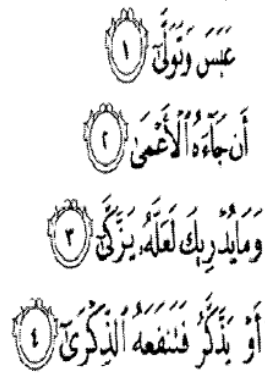 عَبَسَ وَتَوَلَّىٰٓ ١
أَن جَآءَهُ ٱلْأَعْمَىٰ ٢
وَمَا يُدْرِيكَ لَعَلَّهُۥ يَزَّكَّىٰٓ ٣
أَوْ يَذَّكَّرُ فَتَنفَعَهُ ٱلذِّكْرَىٰٓ ٤